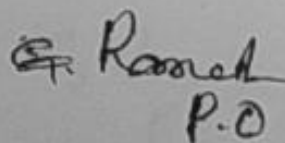 G. Ramesh
P.O